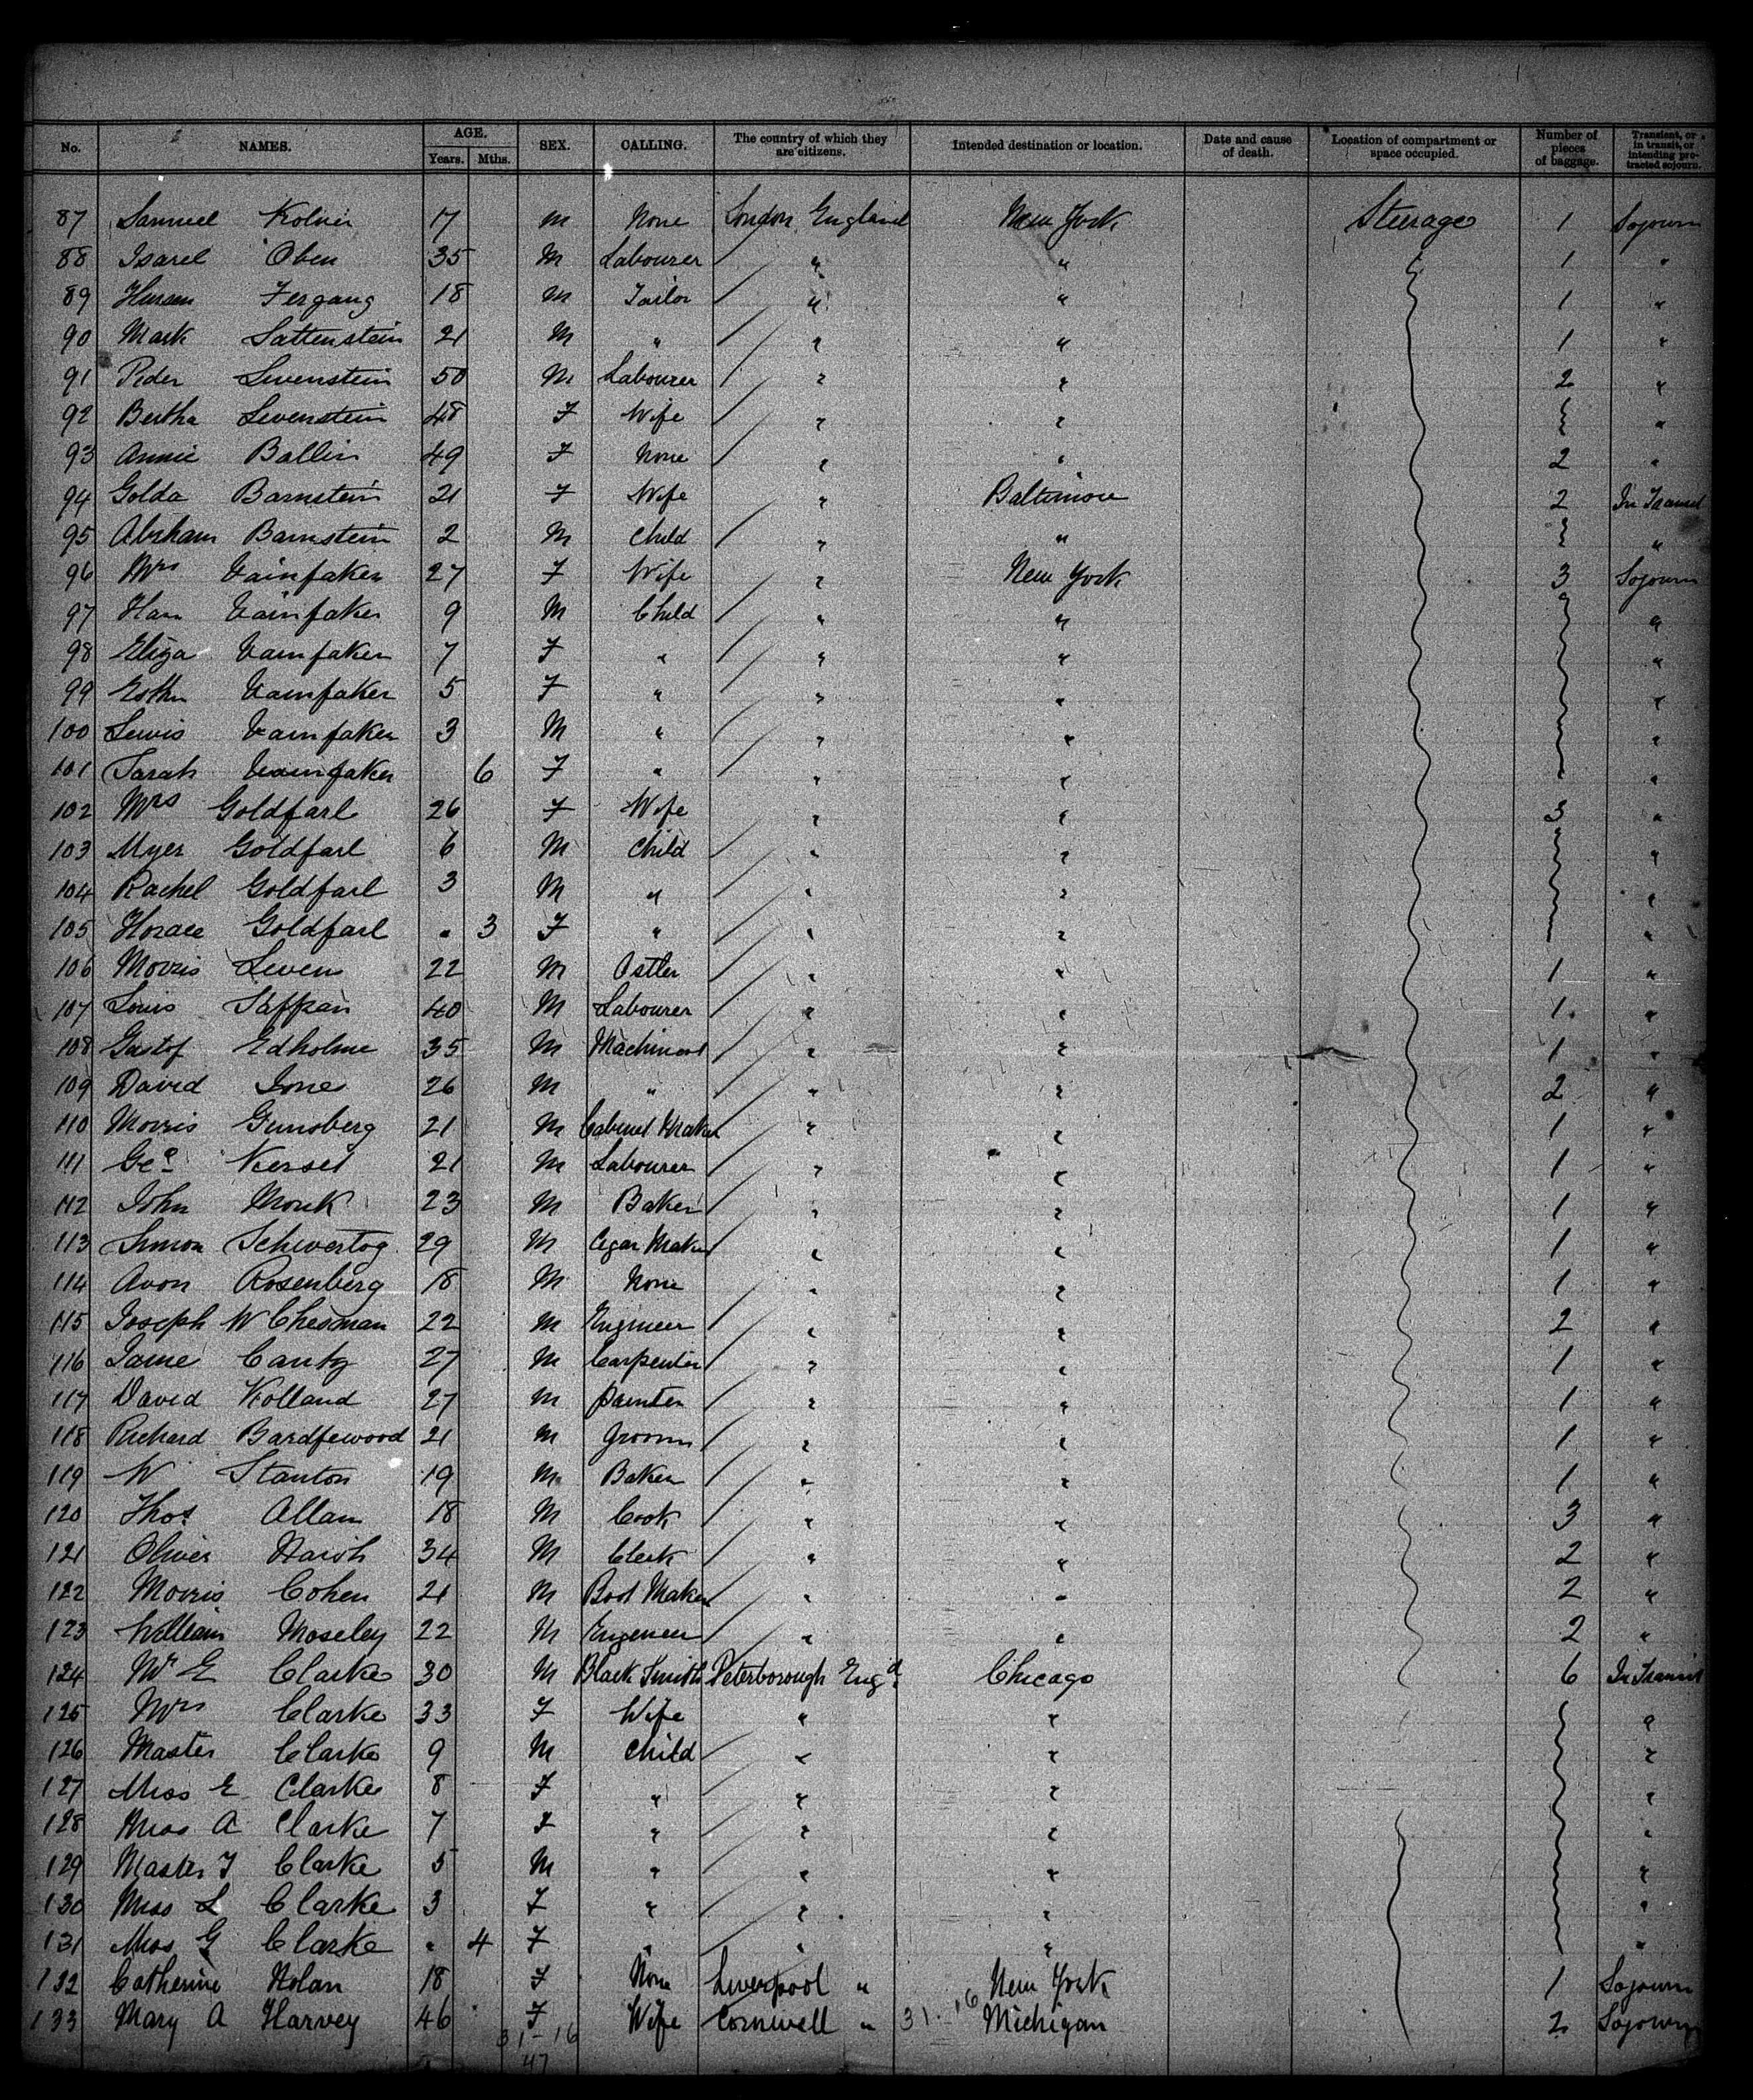 No. NAMES. AGE. Years. Mths. SEX. CALLING. The country of which they are citizens. Intended destination or location. Date and cause of death. Location of compartment or space occupied. Number of pieces of baggage. Transient, or in transit, or intending protracted sojourn.
87 Samuel 17 M None London England New York Steerage 1 Sojourn
88 Isarel Oben 35 M Labourer " " 1 "
89 Fergang 18 M Tailor " " 1 "
90 Mark Sattenstein 21 M " " " 1 "
91 Peder Levenstein 50 M Labourer " " 2 "
92 Bertha Levenstein 48 F Wife " " "
93 Annie Ballin 49 F None " " 2 "
94 Golda Barnstein 21 F Wife " Baltimore 2 In Transit
95 Abraham Barnstein 2 M Child " " "
96 Mrs Vainfaker 27 F Wife " New York 3 Sojourn
97 Ham Vainfaker 9 M Child " " "
98 Eliza Vainfaker 7 F " " " "
99 Esther Vainfaker 5 F " " " "
100 Lewis Vainfaker 3 M " " " "
101 Sarah Vainfaker 6 F " " " "
102 Mrs Goldfarl 26 F Wife " " 3 "
103 Myer Goldfarl 6 M Child " " "
104 Rachel Goldfarl 3 M " " " "
105 Horace Goldfarl " 3 F " " " "
106 Morris Leven 22 M Ostler " " 1 "
107 Louis Saffran 40 M Labourer " " 1 "
108 Gustof Edholme 35 M Machinest " " 1 "
109 David Jones 26 M " " " 2 "
110 Morris Gunsberg 21 M Cabinet Maker " " 1 "
111 Geo 21 M Labourer " " 1 "
112 John Monk 23 M Baker " " 1 "
113 Simon Schwertog 29 M Cegar Maker " " 1 "
114 Avon Rosenberg 18 M None " " 1 "
115 Joseph W Chesman 22 M Engineer " " 2 "
116 Canty 27 M Carpenter " " 1 "
117 David Holland 27 M Painter " " 1 "
118 Richard Bardfewood 21 M Groom " " 1 "
119 W Stanton 19 M Baker " " 1 "
120 Thos Allam 18 M Cook " " 3 "
121 Oliver 34 M Clerk " " 2 "
122 Morris Cohen 21 M Boot Maker " " 2 "
123 William Moseley 22 M Engeneer " " 2 "
124 Mr E Clarke 30 M Black Smith Peterborough Engd. Chicago 6 In Transit
125 Mrs Clarke 33 F Wife " " "
126 Master Clarke 9 M Child " " "
127 Miss E Clarke 8 F " " " "
128 Miss A Clarke 7 F " " " "
129 Master F Clarke 5 M " " " "
130 Miss L Clarke 3 F " " " "
131 Miss G Clarke " 4 F " " " "
132 Catherine Nolan 18 F None Liverpool " New York 1 Sojourn
133 Mary A Harvey 46 F Wife Cornwell " 31-16 Michigan 2 Sojourn
31-16
47